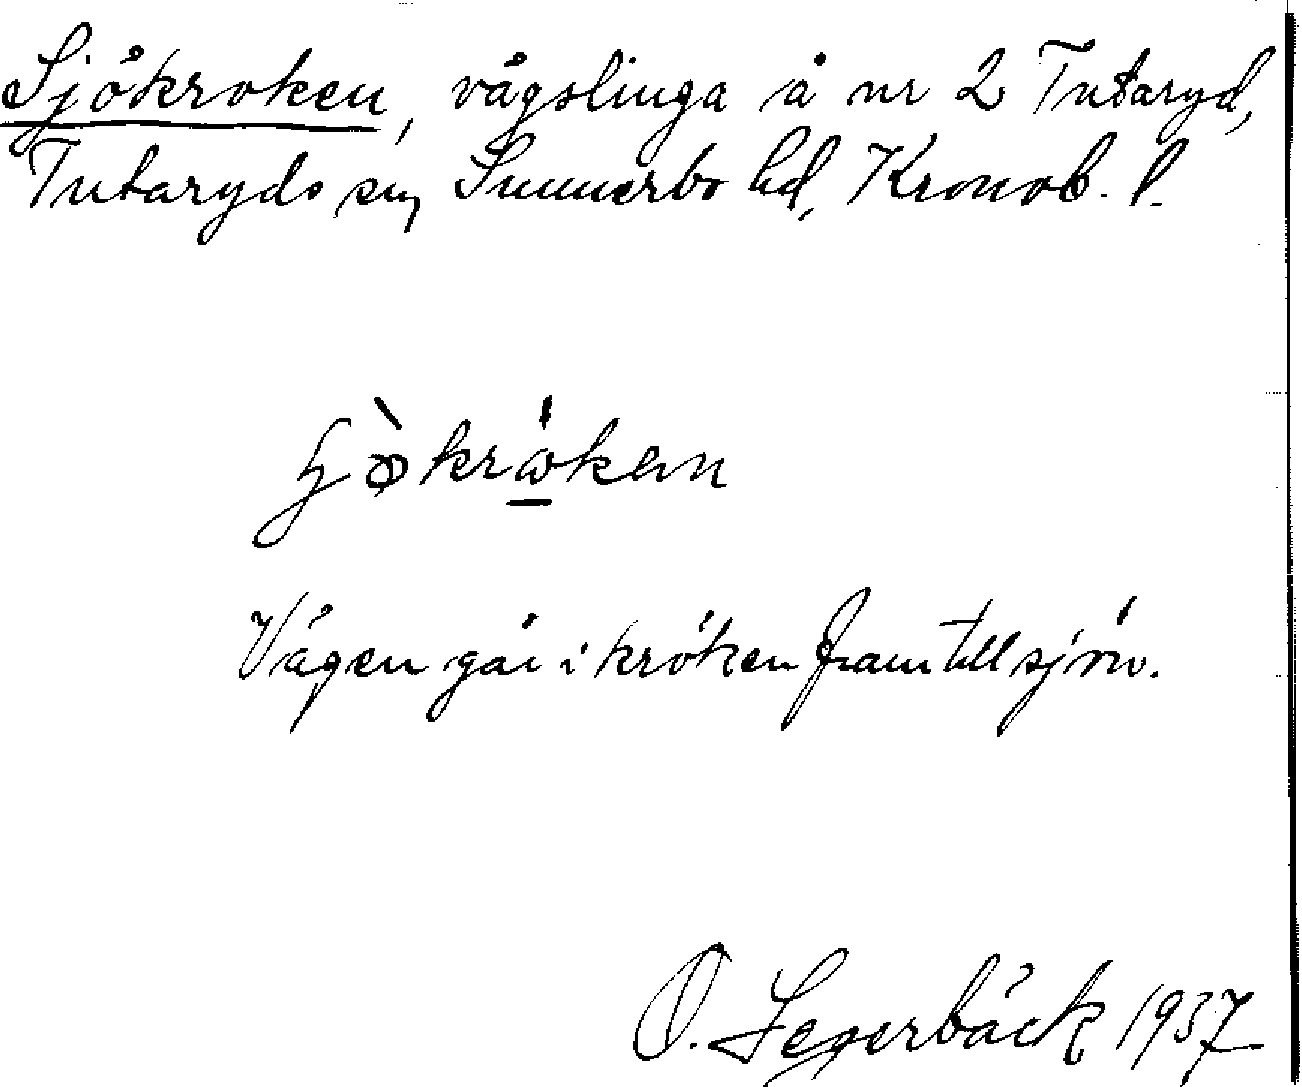 Sjökroken, vägslinga å nr 2 Tutaryd,
Tutaryds sn, Sunnerbo hd, Kronob. l.
Vägen går i kröken fram till sjön.
O. Segerbäck 1937